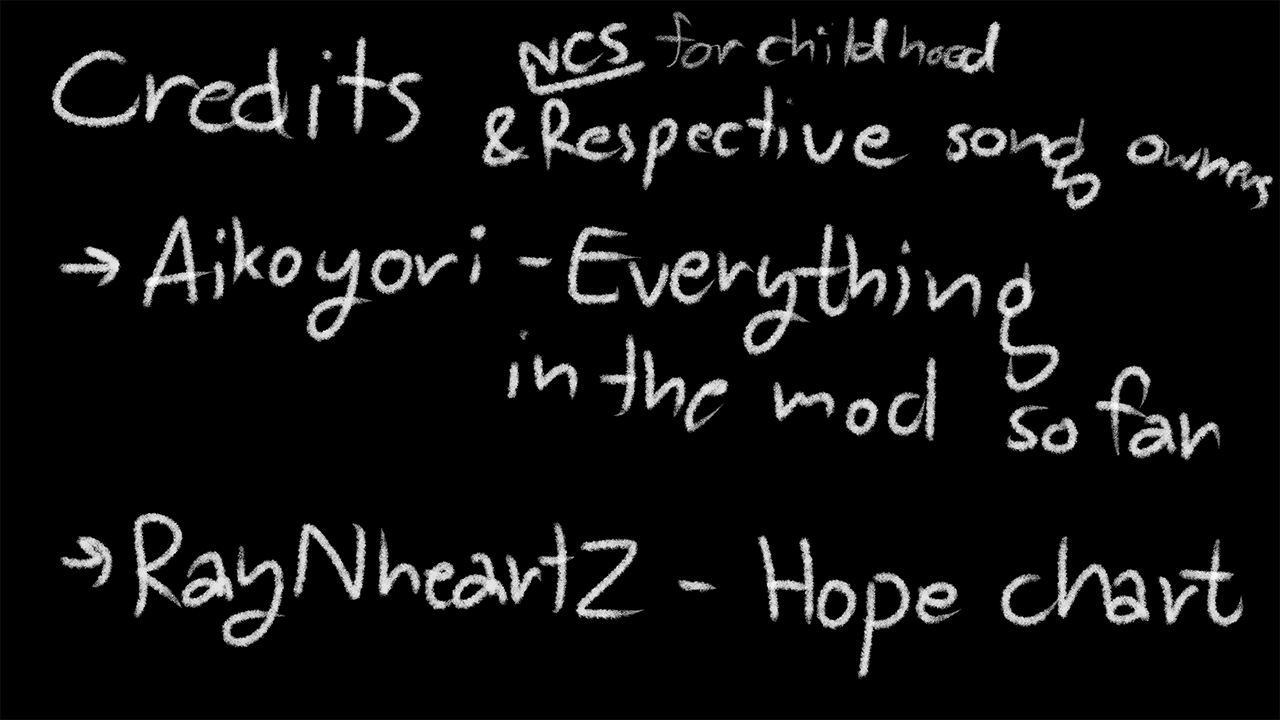 Credits
NCS for childhood
& Respective song owners
→ Aikoyori - Everything
in the mod so far
→ RayNheartZ - Hope chart